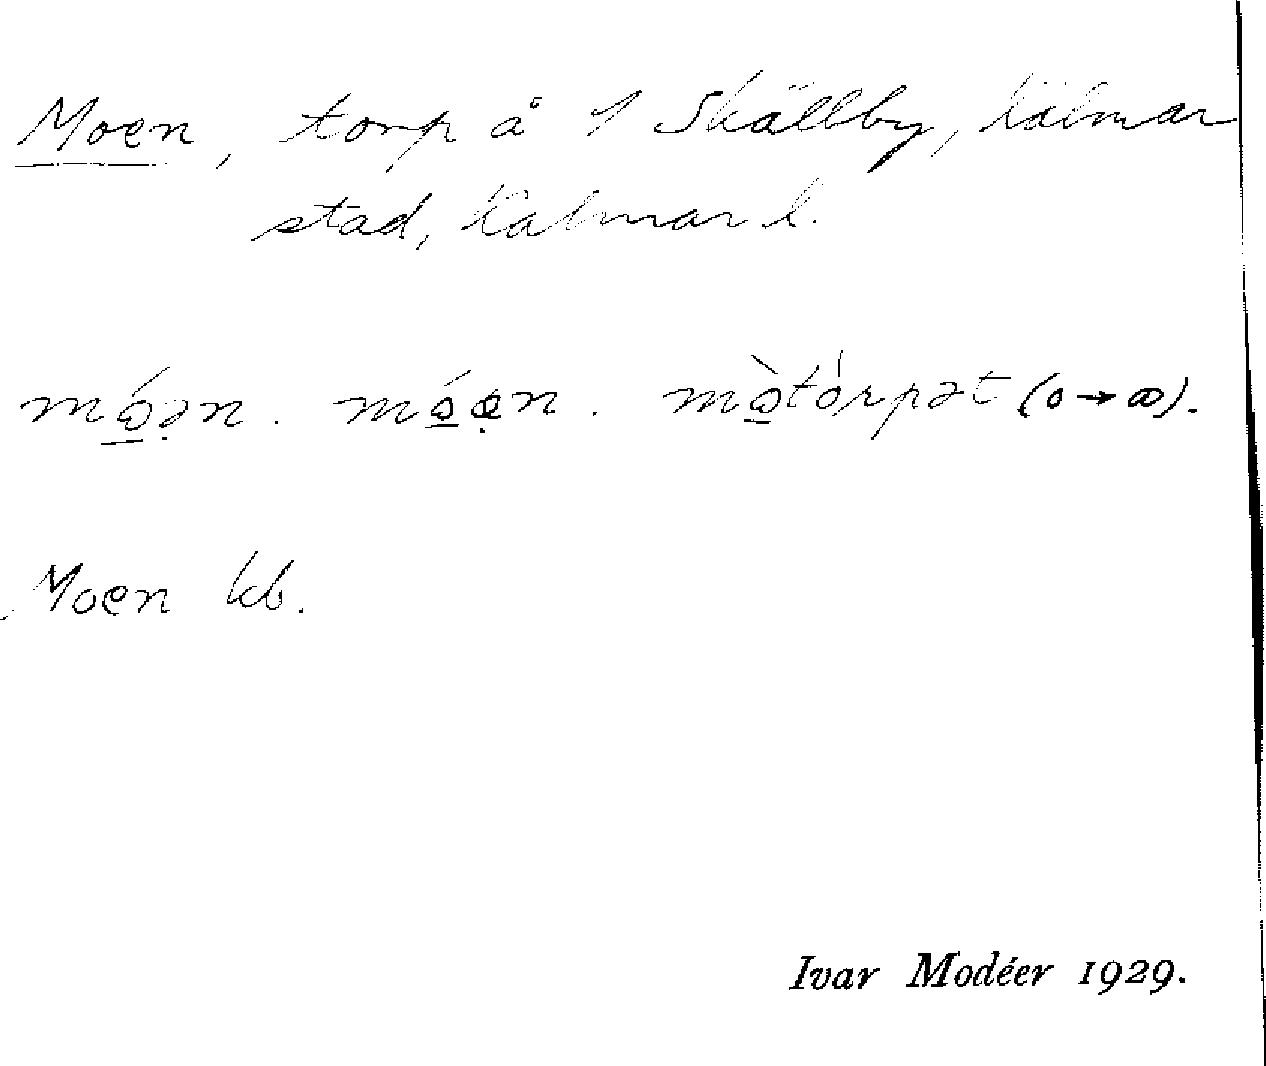 Moen, torp å 1 Skällby, Kalmar
stad, Kalmar l.
mó̱ən. mó̱ẹn. mò̱tórpət (o→ꝏ).
Moen kb.
Ivar Modéer 1929.